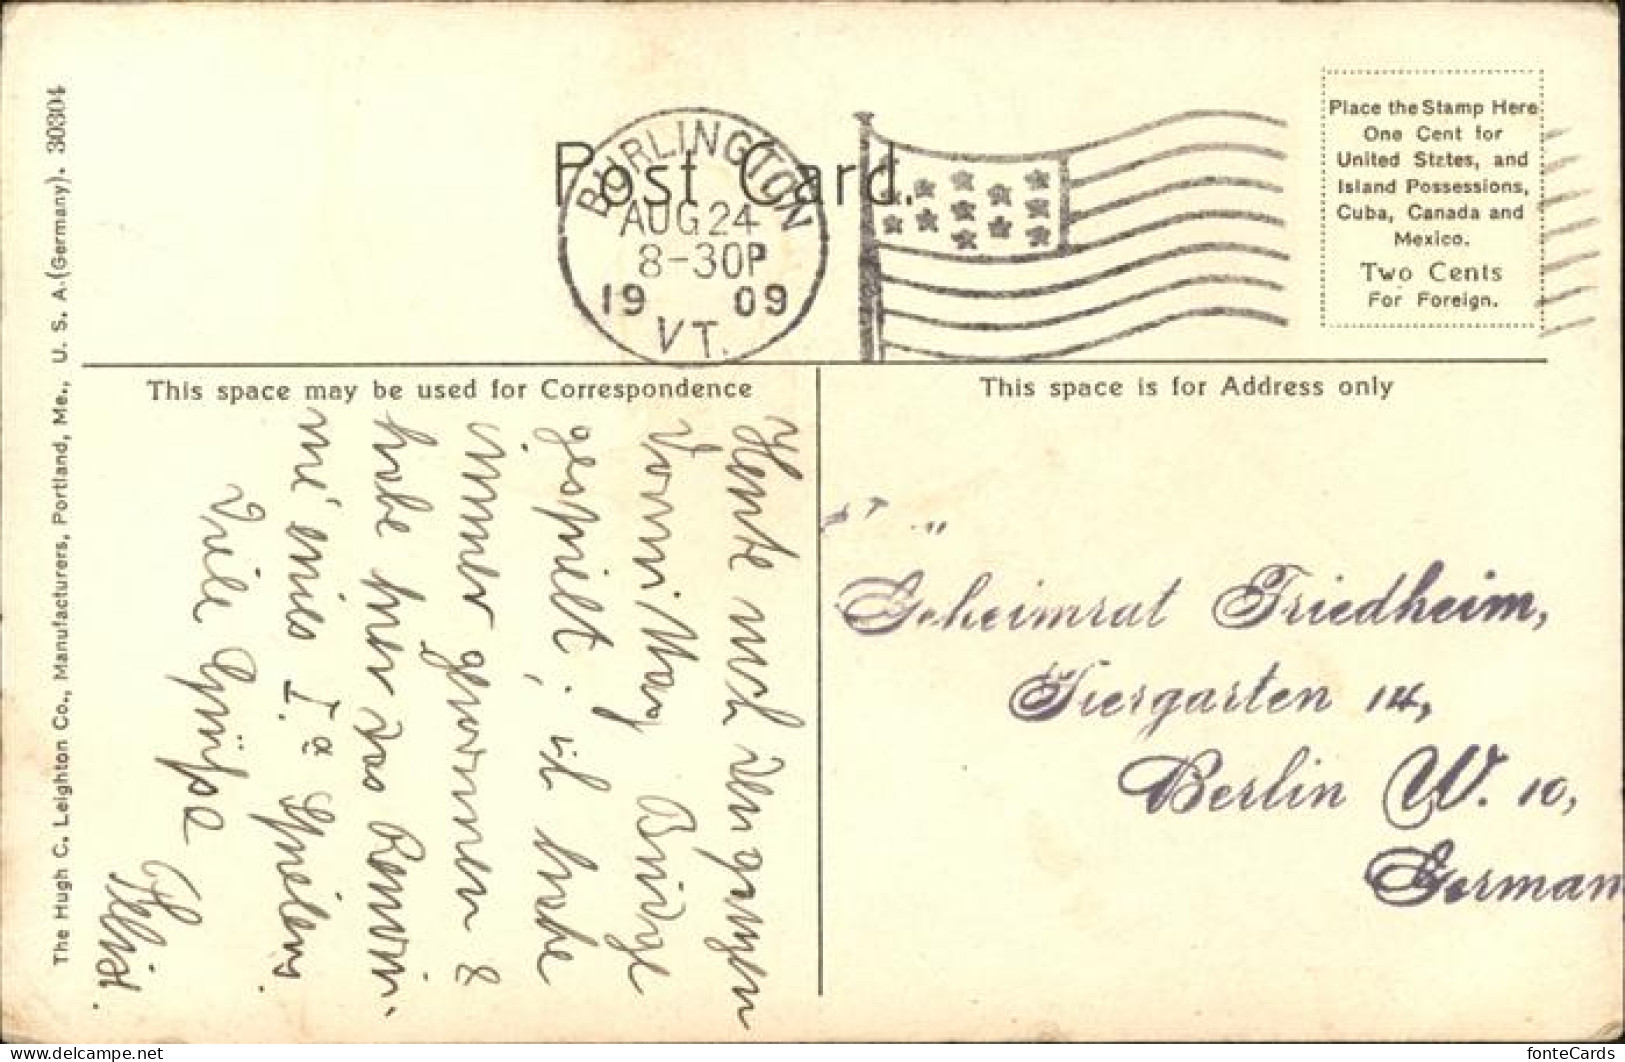 The Hugh C. Leighton Co., Manufacturers, Portland, Me., U. S. A. (Germany). 30304
Post Card.
BURLINGTON
AUG 24
8-30P
1909
VT.
Place the Stamp Here
One Cent for
United States, and
Island Possessions,
Cuba, Canada and
Mexico.
Two Cents
For Foreign.
This space may be used for Correspondence
Heute auch den ganzen
Vormittag Bridge
gespielt; ich habe
immer gewonnen &
habe hier das
eines I.a Spielers.
Viele Grüsse
This space is for Address only
Geheimrat Friedheim,
Tiergarten 14,
Berlin W. 10,
German
fonteCards
delcampe.net